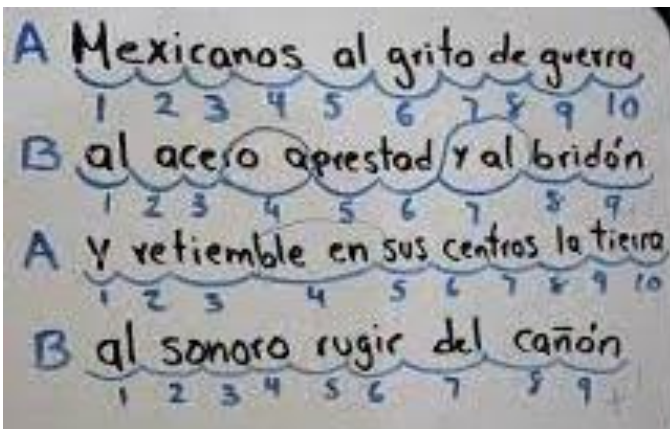 A Mexicanos al grito de guerra
1 2 3 4 5 6 7 8 9 10
B al acero aprestad y al bridón
1 2 3 4 5 6 7 8 9
A y retiemble en sus centros la tierra
1 2 3 4 5 6 7 8 9 10
B al sonoro rugir del cañón
1 2 3 4 5 6 7 8 9